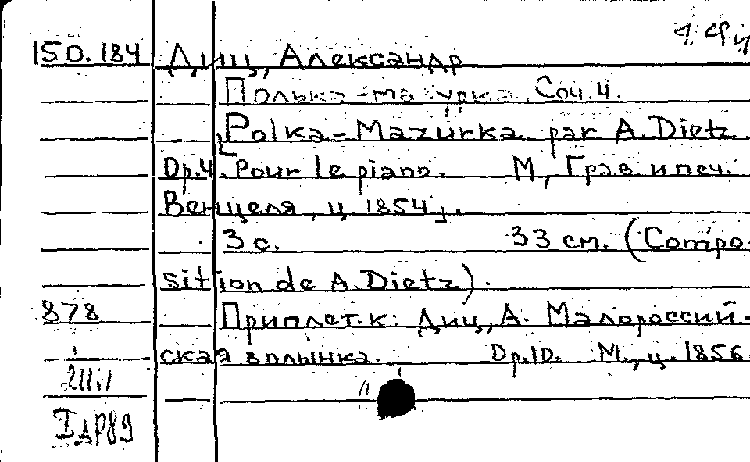 150.184 Диц, Александр
Полька-мазурка. Соч. 4.
[Polka-Mazurka par A. Dietz
Op. 4. Pour le piano. М., Грав. и печ.
Венцеля, ц. 1854].
3 с. 33 см. (Compo-
sition de A. Dietz).
878 Приплет. к: Диц, А. Малороссий-
ская волынка. Op. 10. М., ц. 1856